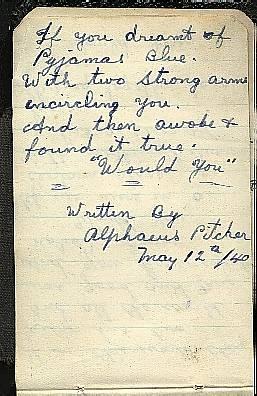 If you dreamt of
Pyjamas Blue.
With two strong arms
encircling you.
And then awoke &
found it true.
"Would You"
Written By
Alphaeus Pitcher
May 12th/40